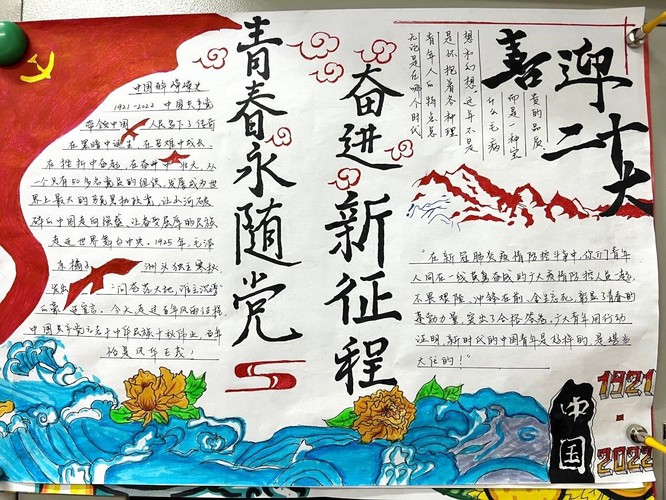 喜迎
二十大
青春永随党
奋进新征程
无论是在哪个时代
青年人的特点总
是怀抱着各种理
想和幻想。这并不是
什么毛病
而是一种宝
贵的品质
1921-2022 中国共产党
带领中国人民写下了传奇
在黑暗中诞生,在苦难中成长
在挫折中奋起,在奋斗中壮大,从
一个只有50多名党员的组织,发展成为世
界上最大的马克思执政党,让山河破
碎的中国走向强盛,让备受屈辱的民族
走近世界舞台中央。1925年,毛泽
东橘子洲头独立寒秋
发出"问苍茫大地,谁主沉浮"
的豪迈宣言。今天,走过百年风雨征程
中国共产党立志于中华民族千秋伟业,百年
恰是风华正茂!
"在新冠肺炎疫情防控斗争中,你们青年
人同在一线英勇奋战的广大疫情防控人员一起,
不畏艰险、冲锋在前、舍生忘死,彰显了青春的
蓬勃力量,交出了合格答卷。广大青年用行动
证明,新时代的中国青年是好样的,是堪当
大任的!"
中国
1921
-
2022